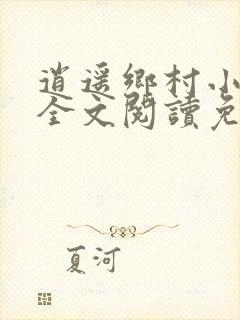 逍遥鄉村小
全文閱讀免
夏河